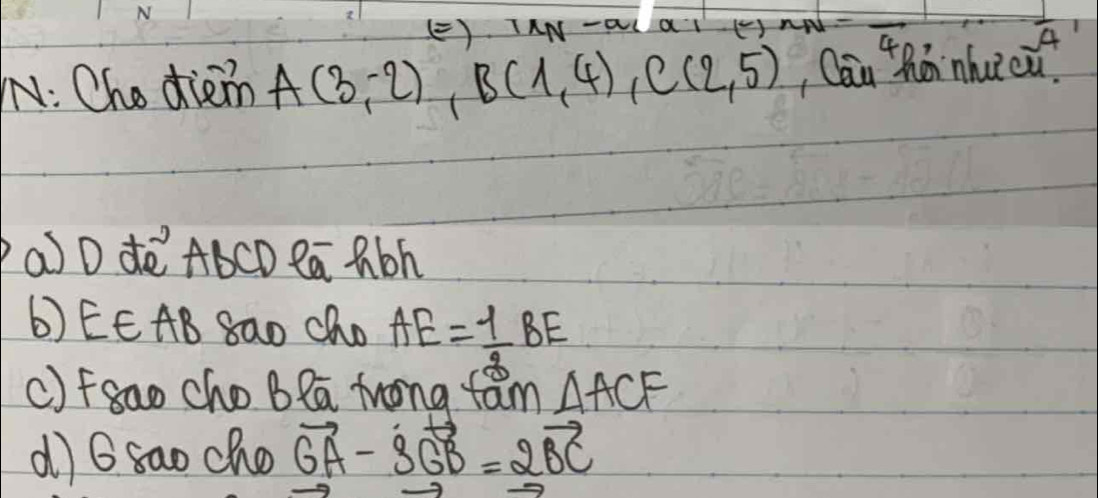 N
N: Cho điểm A(3,-2), B(1,4), C(2,5), Câu hỏi như cũ.
a) D để ABCD là hbh
b) E ∈ AB sao cho AE = 1/3 BE
c) F sao cho B là trọng tâm ΔACF
d) G sao cho \overrightarrow{GA} - 3\overrightarrow{GB} = 2\overrightarrow{BC}